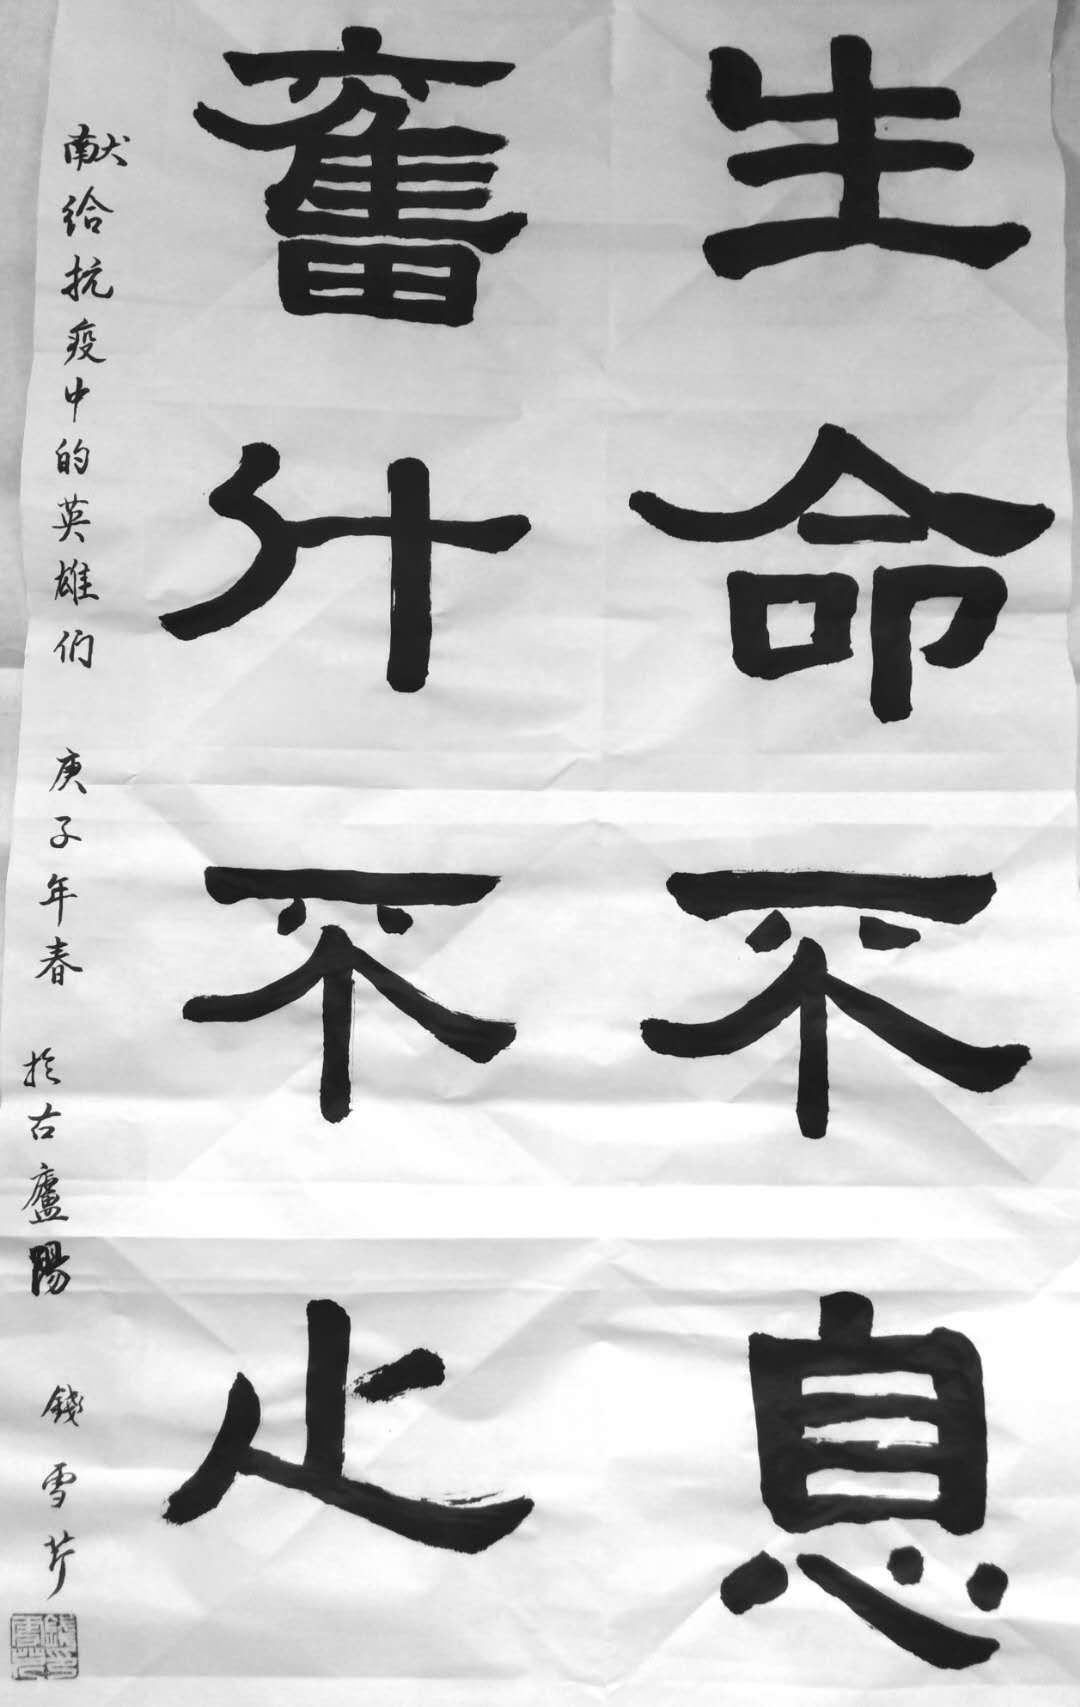 生命不息
奮斗不止
献给抗疫中的英雄们 庚子年春 於古廬陽 錢雪芹